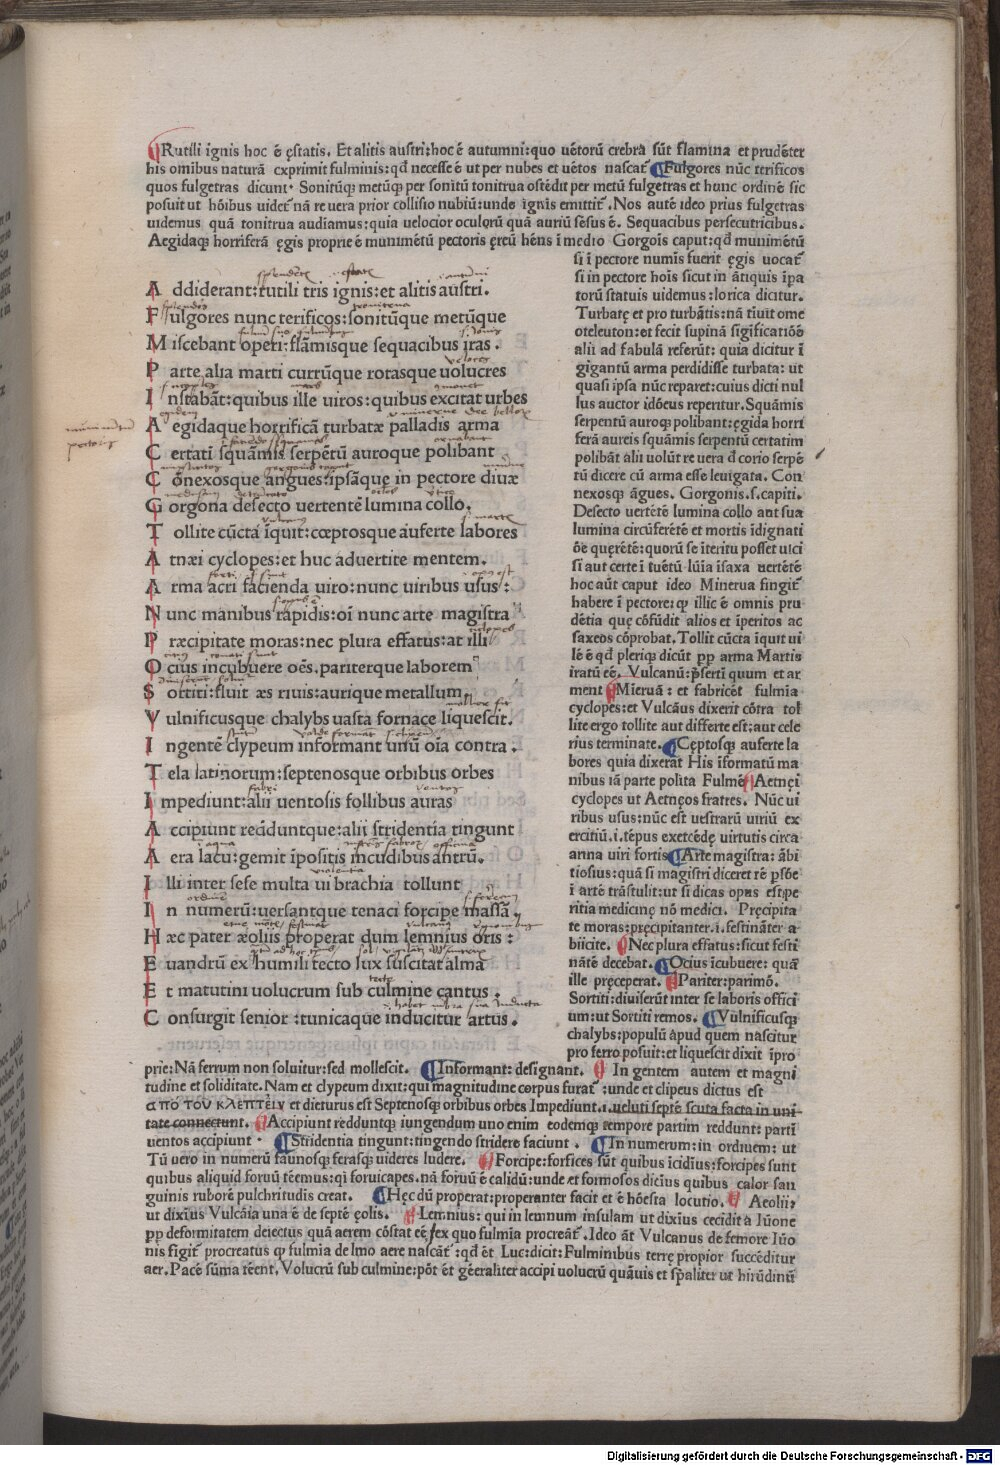 Rutili ignis hoc ē ęstatis. Et alitis austri:hoc ē autumni:quo uētorū crebra sūt flamina et prudēter
his omībus naturā exprimit fulminis:qđ necesse ē ut per nubes et uētos nascat̄ Fulgores nūc terificos
quos fulgetras dicunt. Sonitūq; metūq; per sonitū tonitrua ostēdit per metū fulgetras et hunc ordinē sic
posuit ut hōibus uidet̄ nā re uera prior collisio nubiū:unde ignis emittit̄. Nos autē ideo prius fulgetras
uidemus quā tonitrua audiamus:quia uelocior oculorū quā auriū sēsus ē. Sequacibus persecutricibus.
Aegidaq; horriferā ęgis proprie ē munimētū pectoris ęreū hēns ī medio Gorgōis caput:qđ munimētū
si ī pectore numīs fuerit ęgis uocat̄
si in pectore hoīs sicut in ātiquis īpa
torū statuis uidemus:lorica dicitur.
Turbatę et pro turbātis:nā tiuit ome
oteleuton:et fecit supinā sīgīficatiōē
alii ad fabulā referūt: quia dicitur ī
gigantū arma perdidisse turbata: ut
quasi ipsa nūc reparet:cuius dicti nul
lus auctor idōeus reperitur. Squāmis
serpentū auroq; polibant:ęgida horri
ferā aureis squāmis serpentū certatim
polibāt alii uolūt re uera đ corio serpē
tū dicere cū arma esse leuigata. Con
nexosq; āgues. Gorgonis.s.capiti.
Desecto uertētē lumina collo ant sua
lumina circūferētē et mortis īdignati
ōe quęrētē:quorū se īteritu posset ulci
si aut certe ī tuētū lūīa īsaxa uertētē
hoc aūt caput ideo Minerua fingit̄
habere ī pectore:q; illic ē omnis pru
dētia quę cōfūdit alios et īperitos ac
saxeos cōprobat. Tollit cūcta īquit ui
lē ē qđ pleriq; dicūt pp arma Martis
iratū eē. Vulcanū:p̄serti quum et ar
ment Mieruā: et fabricēt fulmīa
cyclopes:et Vulcāus dixerit cōtra tol
lite ergo tollite aut differte est:aut cele
rius terminate. Cęptosq; auferte la
bores quia dixerat His īformatū ma
nibus iā parte polita Fulmē Aetnęi
cyclopes ut Aetnęos fratres. Nūc ui
ribus usus:nūc est uestrarū uiriū ex
ercitiū.i.tēpus exercędę uirtutis circa
arma uiri fortis Arte magistra: ābi
tiosius:quā si magistri diceret rē p̄sōe
ī artē trāstulit:ut si dicas opus est pe
ritia medicinę nō medici. Pręcipita
te moras:pręcipitanter.i.festināter a
biicite. Nec plura effatus:sicut festi
nātē decebat. Ocius īcubuere: quā
ille pręceperat. Pariter:parimō.
Sortiti:diuiserūt inter se laboris offici
um:ut Sortiti remos. Vulnificusq;
chalybs:populū apud quem nascitur
pro ferro posuit:et liquescit dixit īpro
A ddiderant:rutili tris ignis:et alitis austri.
F ulgores nunc terificos:sonitūque metūque
M iscebant operi:flāmisque sequacibus iras.
P arte alia marti currūque rotasque uolucres
I nstabāt:quibus ille uiros:quibus excitat urbes
A egidaque horrificā turbatæ palladis arma
C ertatī squāmis serpētū auroque polibant
C ōnexosque angues:ipsāque in pectore diuæ
G orgona desecto uertentē lumina collo.
T ollite cūcta īquit:cœptosque auferte labores
A tnæi cyclopes:et huc aduertite mentem.
A rma acri facienda uiro:nunc uiribus usus:
N unc manibus rapidis:oī nunc arte magistra
P ræcipitate moras:nec plura effatus:at illi
O cius incubuere oēs.pariterque laborem
S ortiti:fluit æs riuis:aurique metallum
V ulnificusque chalybs uasta fornace liquescit.
I ngentē clypeum informant unū oīa contra.
T ela latinorum:septenosque orbibus orbes
I mpediunt:alii uentosis follibus auras
A ccipiunt redduntque:alii stridentia tingunt
A era lacu:gemit īpositis incudibus antrū.
I lli inter sese multa ui brachia tollunt
I n numerū:uersantque tenaci forcipe massā.
H æc pater æoliis properat dum lemnius oris:
E uandrū ex humili tecto lux suscitat alma
E t matutini uolucrum sub culmine cantus.
C onsurgit senior:tunicaque inducitur artus.
prie: Nā ferrum non soluitur:sed mollescit. Informant: designant. In gentem autem et magni
tudine et soliditate. Nam et clypeum dixit:qui magnitudine corpus furat̄ :unde et clipeus dictus est
απο του κλεπτειν et dicturus est Septenosq; orbibus orbes Impediunt.i.ueluti septē scuta facta in uni
tate connectunt. Accipiunt redduntq; iungendum uno enim eodemq; tempore partim reddunt: parti
uentos accipiunt. Stridentia tingunt:tingendo stridere faciunt. In numerum:in ordinem: ut
Tū uero in numerū faunosq; ferasq; uideres ludere. Forcipe:forfices sūt quibus īcidīus:forcipes sunt
quibus aliquid foruū teemus:qi foruicapes.nā foruū ē calidū:unde et formosos dicīus quibus calor san
guinis ruborē pulchritudis creat. Hęc dū properat:properanter facit et ē hōesta locutio. Aeolii:
ut dixīus Vulcāīa una ē de septē ęolis. Lemnius: qui in lemnum insulam ut dixīus cecidit a Iūone
pp deformitatem deiectus quā aerem cōstat eē:ex quo fulmīa procreāt̄. Ideo āt Vulcanus de femore Iūo
nis figit̄ procreatus q; fulmīa de īmo aere nascāt̄ :qđ ēt Luc:dicit:Fulminibus terrę propior succēditur
aer. Pacē sūma tēent. Volucrū sub culmine:pōt ēt gēeraliter accipi uolucrū quāuis et sp̄aliter ut hirūdinū
Digitalisierung gefördert durch die Deutsche Forschungsgemeinschaft - DFG